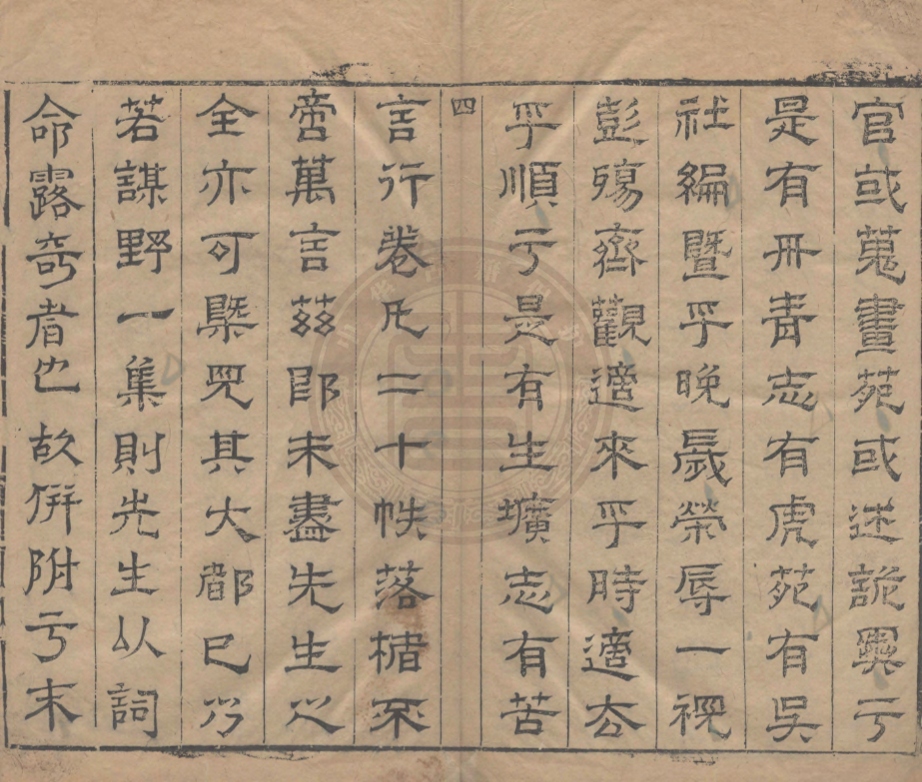 官或蒐畫苑或述詭異亏
是有丹青志有虎苑有吳
社編暨乎晚歲榮辱一視
彭殤齊觀適來乎時適去
乎順亏是有生壙志有苦
四
言行卷凡二十帙落楮不
啻萬言茲即未盡先生之
全亦可槩見其大都已乃
若謀野一集則先生以詞
命露奇者也故併附亏末